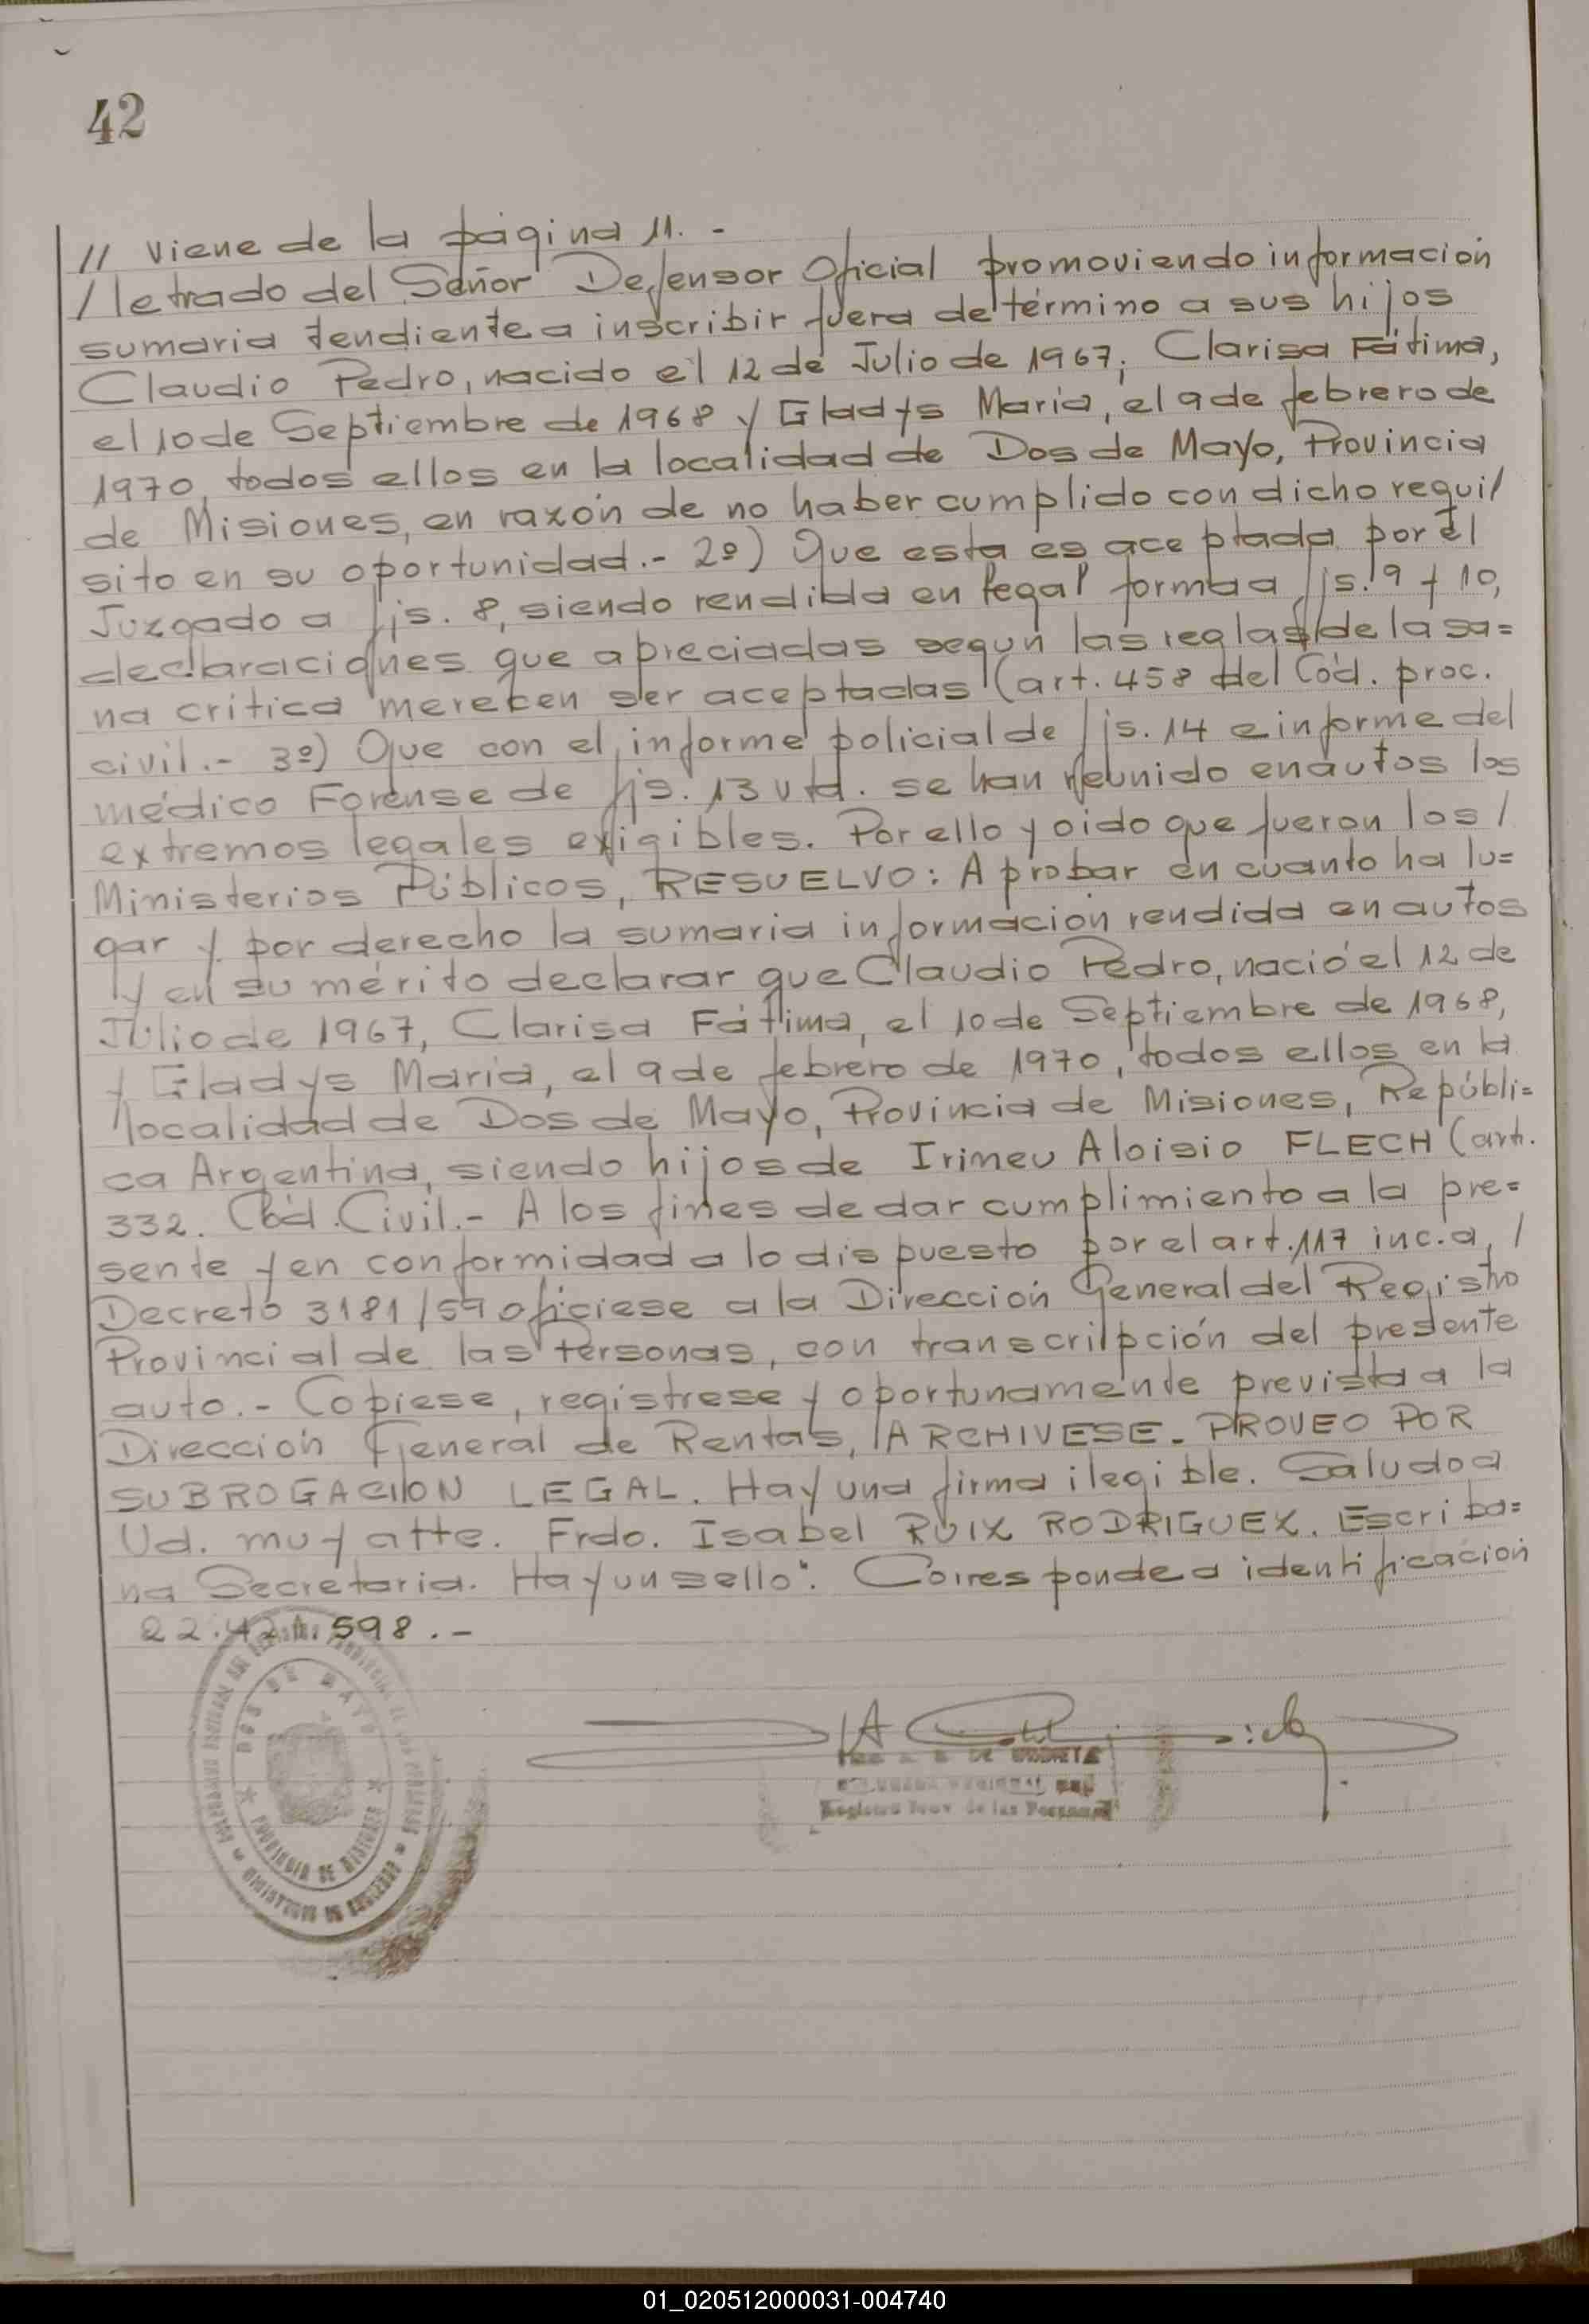 42
// viene de la página 11. -
/ letrado del Señor Defensor Oficial promoviendo información
sumaria tendiente a inscribir fuera de término a sus hijos
Claudio Pedro, nacido el 12 de Julio de 1967; Clarisa Fátima,
el 10 de Septiembre de 1968 y Gladys Maria, el 9 de febrero de
1970, todos ellos en la localidad de Dos de Mayo, Provincia
de Misiones, en razón de no haber cumplido con dicho requi/
sito en su oportunidad.- 2º) Que esta es aceptada por el
Juzgado a fjs. 8, siendo rendida en legal forma a fjs. 9 y 10,
declaraciones que apreciadas según las reglas de la sa=
na critica merecen ser aceptadas (art. 458 del Cód. proc.
civil.- 3º) Que con el informe policial de fjs. 14 e informe del
médico Forense de fjs. 13 vta. se han reunido en autos los
extremos legales exigibles. Por ello y oido que fueron los /
Ministerios Públicos, RESUELVO: Aprobar en cuanto ha lu=
gar y por derecho la sumaria información rendida en autos
y en su mérito declarar que Claudio Pedro, nació el 12 de
Julio de 1967, Clarisa Fátima, el 10 de Septiembre de 1968,
y Gladys Maria, el 9 de febrero de 1970, todos ellos en la
localidad de Dos de Mayo, Provincia de Misiones, Repúbli=
ca Argentina, siendo hijos de Irineu Aloisio FLECH (art.
332. Cód. Civil.- A los fines de dar cumplimiento a la pre=
sente y en conformidad a lo dispuesto por el art. 117 inc. a, /
Decreto 3181/59 ofíciese a la Dirección General del Registro
Provincial de las Personas, con transcripción del presente
auto.- Copiese, registrese y oportunamente prevista a la
Dirección General de Rentas, ARCHIVESE. PROVEO POR
SUBROGACION LEGAL. Hay una firma ilegible. Saludo a
Ud. muy atte. Frdo. Isabel RUIX RODRIGUEX. Escriba=
na Secretaria. Hay un sello". Corresponde a identificación
22.421.598.-
DOS DE MAYO
PROVINCIA DE MISIONES
MINISTERIO DE
DE
Registro Prov. de las Personas
01_020512000031-004740